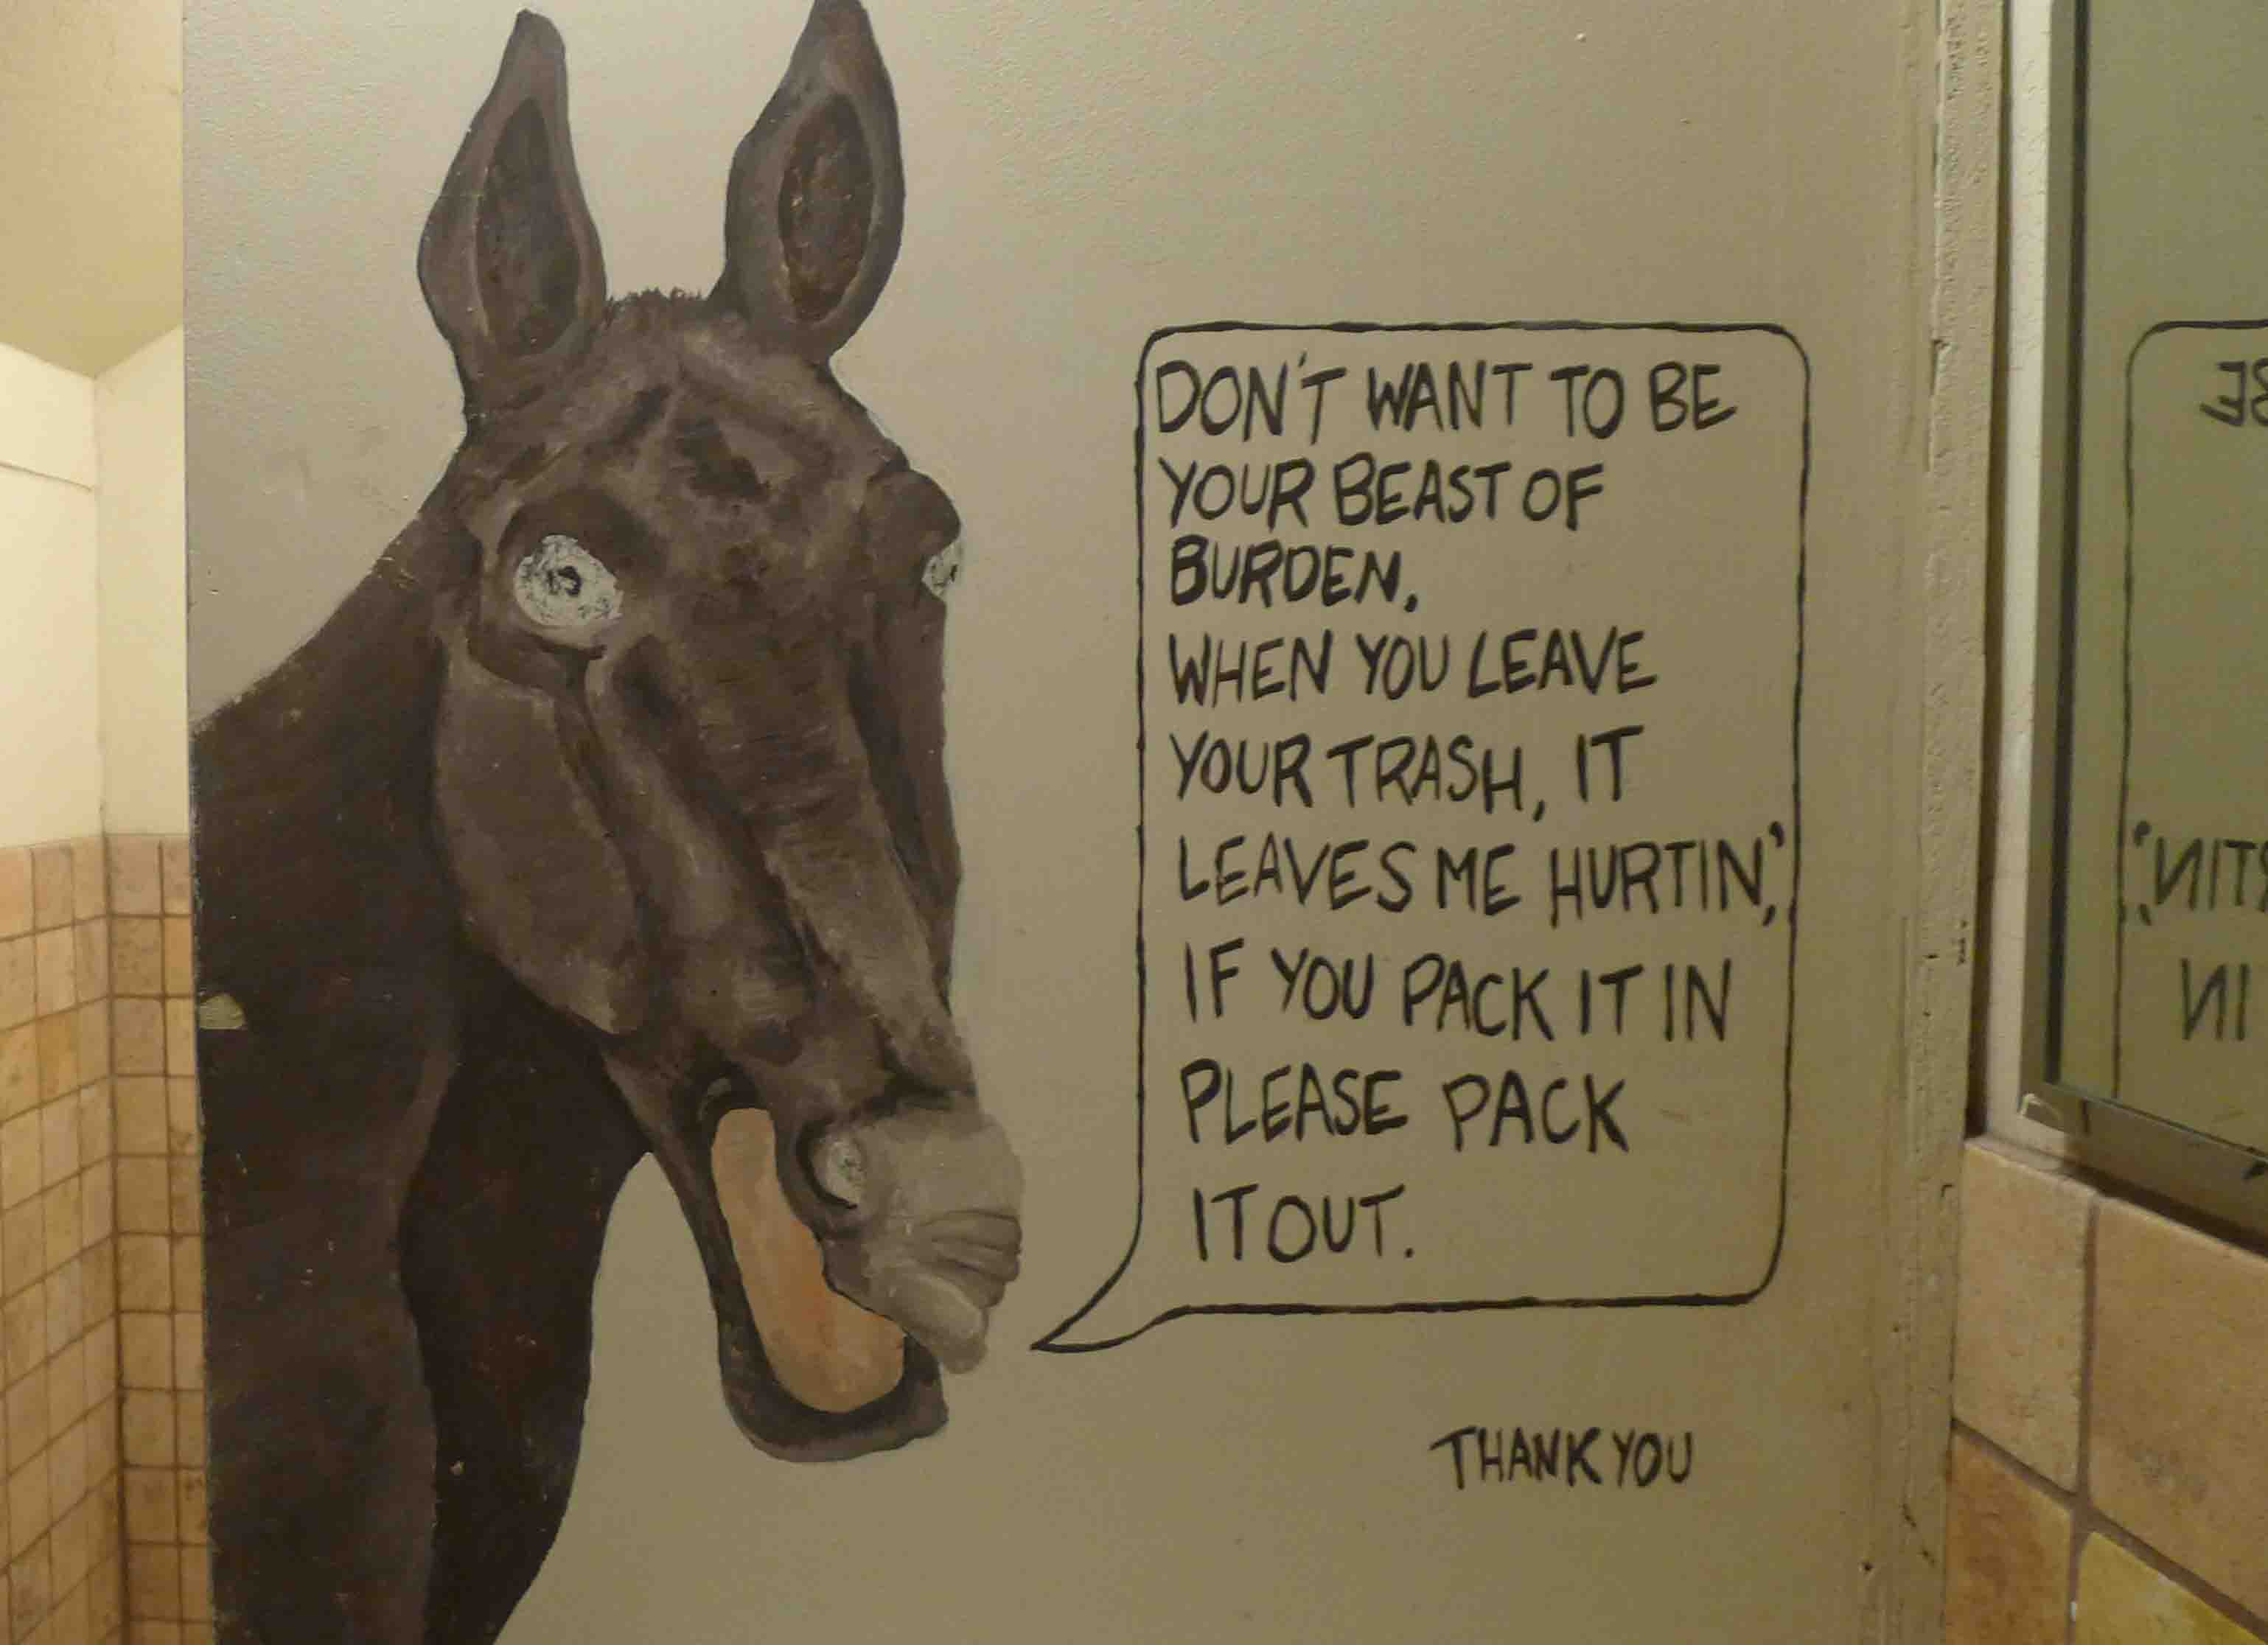 DON'T WANT TO BE
YOUR BEAST OF
BURDEN.
WHEN YOU LEAVE
YOUR TRASH, IT
LEAVES ME HURTIN',
IF YOU PACK IT IN
PLEASE PACK
IT OUT.
THANK YOU